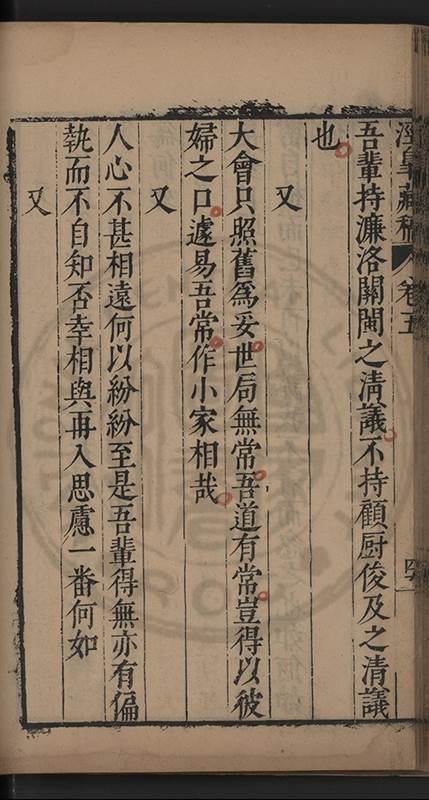 涇皋藏稿 卷五
吾輩持濂洛關閩之清議不持顧厨俊及之清議
也
又
大會只照舊爲妥世局無常吾道有常豈得以彼
婦之口遽易吾常作小家相哉
又
人心不甚相遠何以紛紛至是吾輩得無亦有偏
執而不自知否幸相與再入思慮一番何如
又